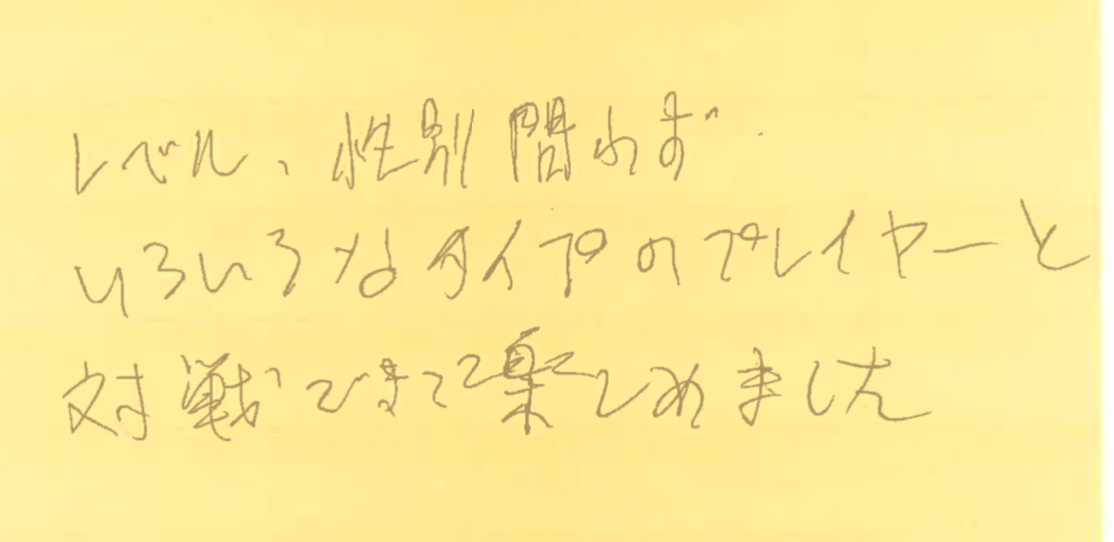 レベル、性別問わず
いろいろなタイプのプレイヤーと
対戦できて楽しめました